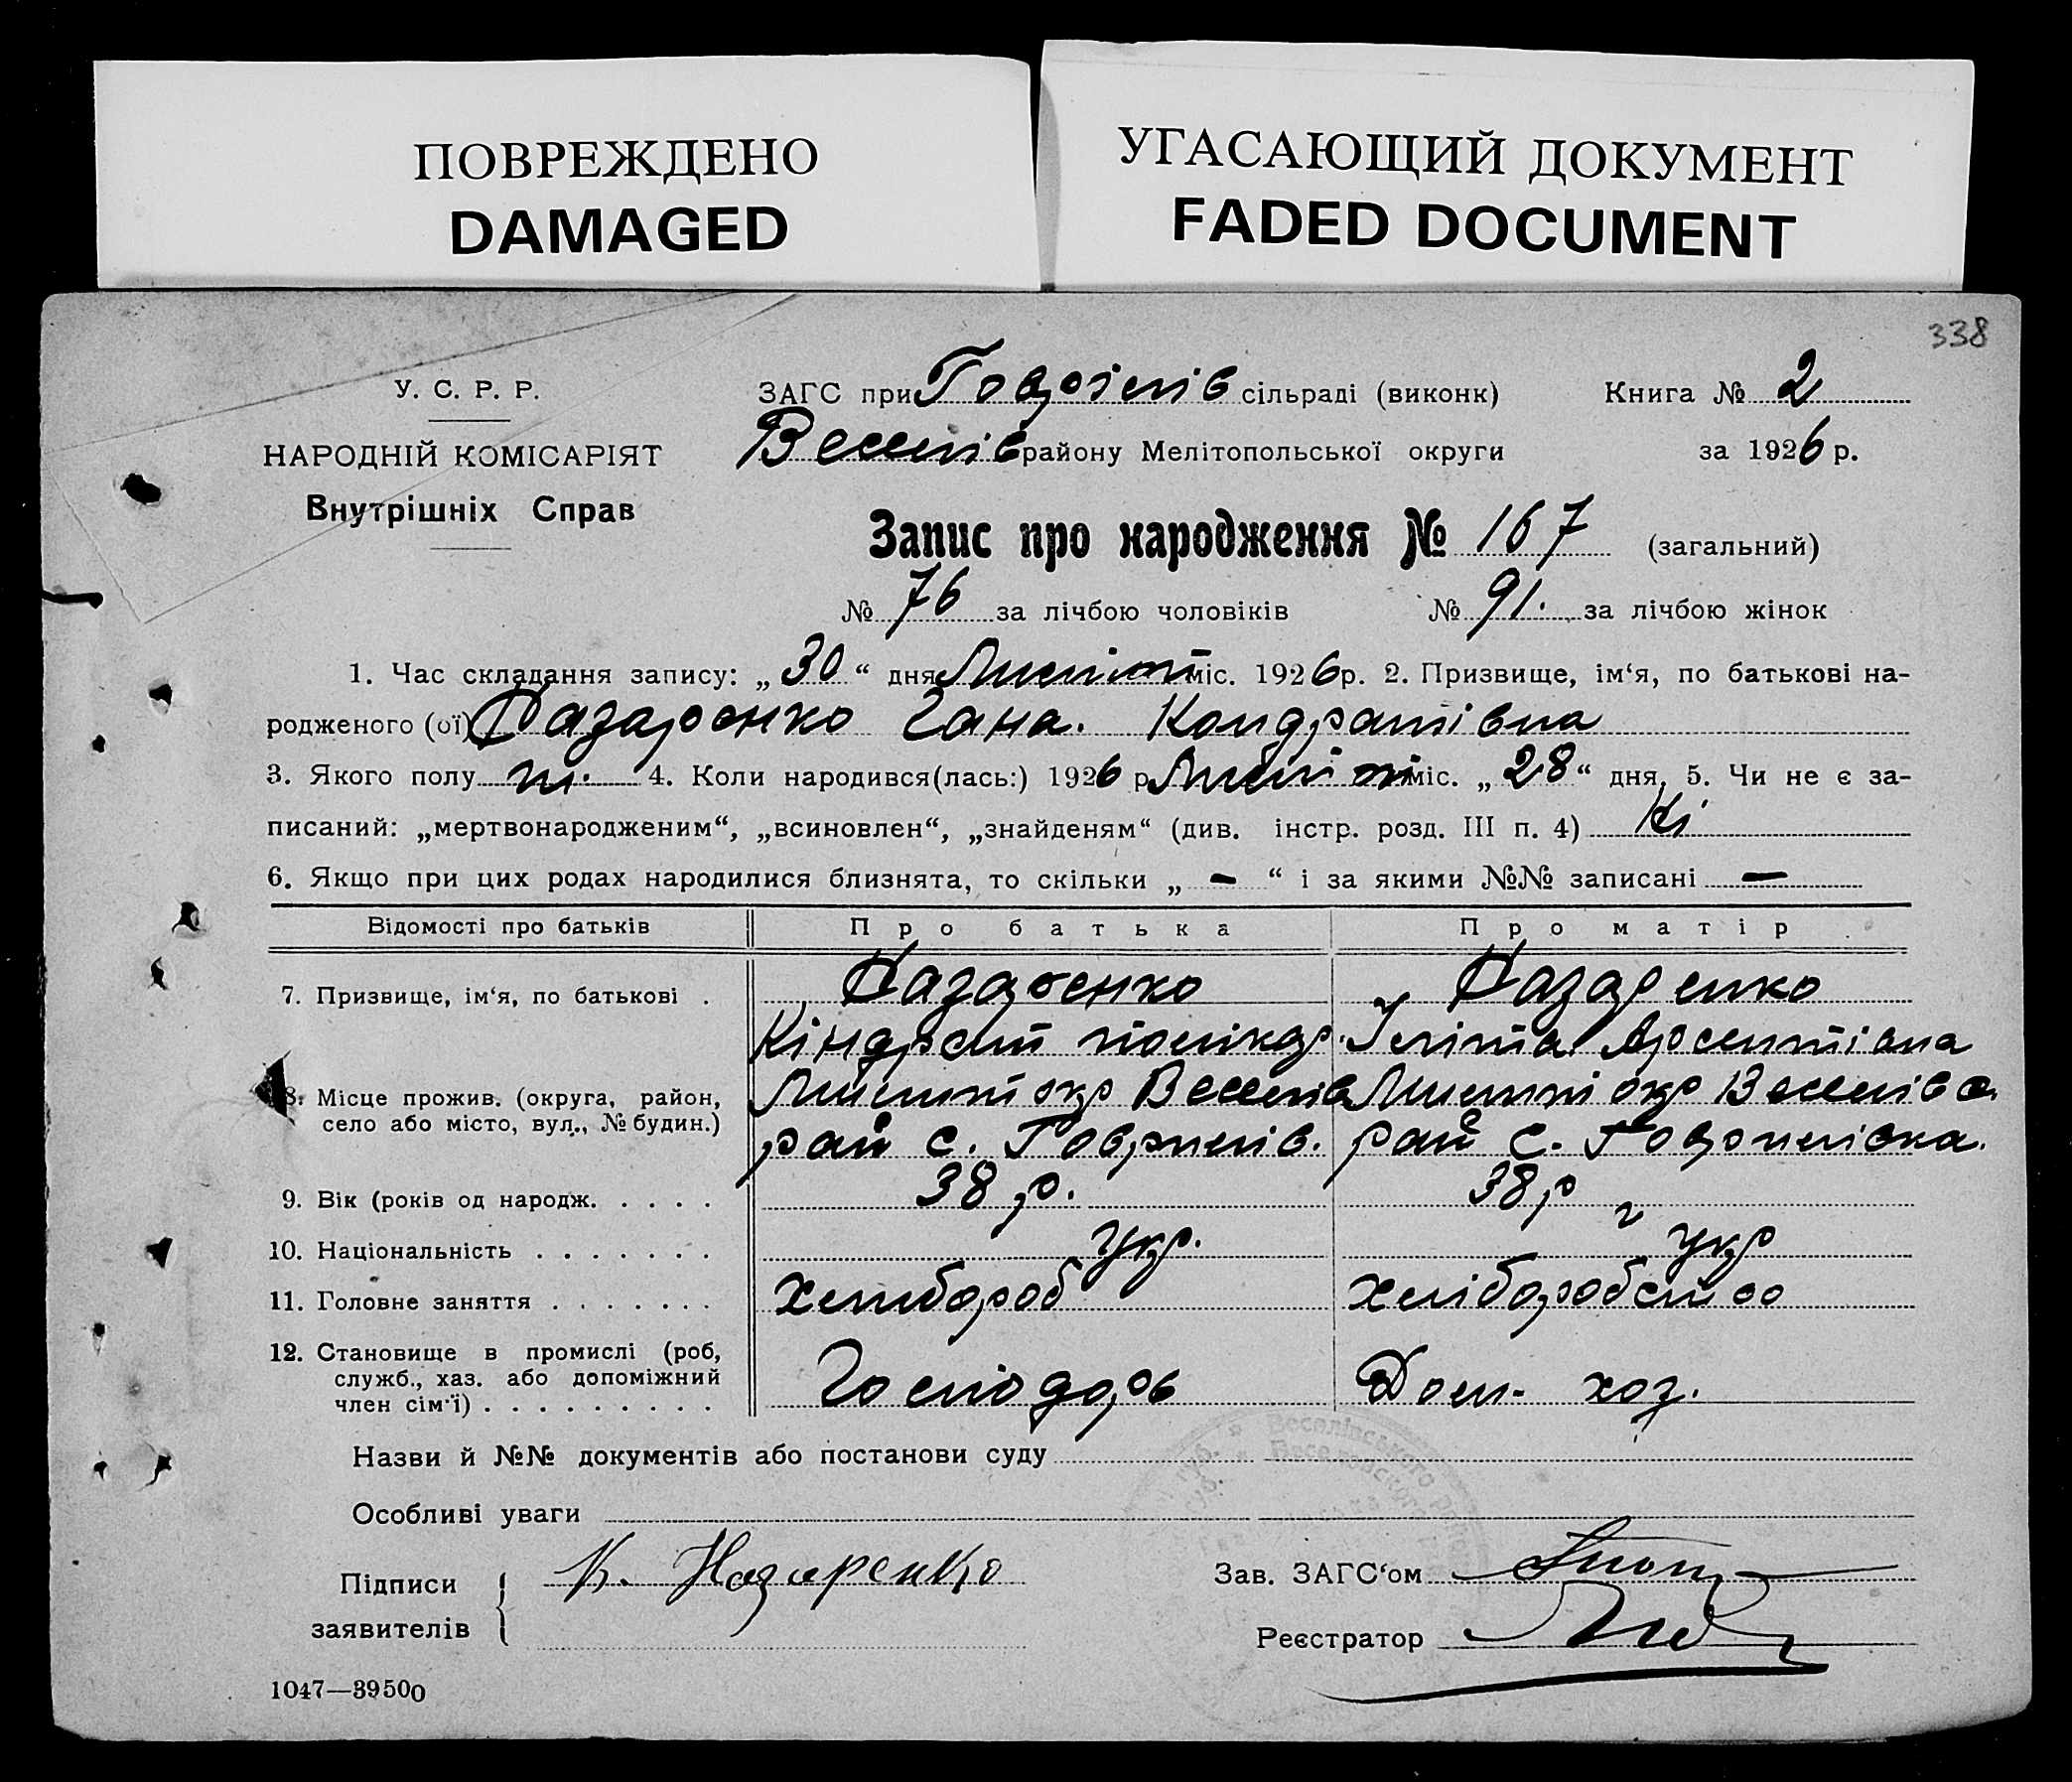 ПОВРЕЖДЕНО
DAMAGED
УГАСАЮЩИЙ ДОКУМЕНТ
FADED DOCUMENT
338
У. С. Р. Р.
НАРОДНІЙ КОМІСАРІЯТ
Внутрішніх Справ
ЗАГС при сільраді (виконк) Книга № 2
Веселів району Мелітопольської округи за 1926 р.
Запис про народження № 167 (загальний)
№ 76 за лічбою чоловіків № 91. за лічбою жінок
1. Час складання запису: „30“ дня міс. 1926р. 2. Призвище, ім‘я, по батькові на-
родженого (ої) Назаренко Гана. Кондратівна
3. Якого полу 4. Коли народився(лась:) 1926 р міс. „28“ дня, 5. Чи не є за-
писаний: „мертвонародженим“, „всиновлен“, „знайденям“ (див. інстр. розд. III п. 4) Ні
6. Якщо при цих родах народилися близнята, то скільки „ — “ і за якими №№ записані —
Відомості про батьків Про батька Про матір
7. Призвище, ім‘я, по батькові . Назаренко Назаренко
Кіндрат
8. Місце прожив. (округа, район, окр Веселів окр Веселівс.
село або місто, вул., № будин.) рай с. Гаврилів. рай с. Гаврилівка.
9. Вік (років од народж. . . . . 38 р. 38 р
10. Національність . . . . . . . укр. укр
11. Головне заняття . . . . . . . Хлибороб хліборобство
12. Становище в промислі (роб,
служб., хаз. або допоміжний Господарь Дом. хоз.
член сім‘ї) . . . . . . . . .
Назви й №№ документів або постанови суду
Особливі уваги
Підписи К. Назаренко Зав. ЗАГС‘ом
заявителів Реєстратор
1047—39500